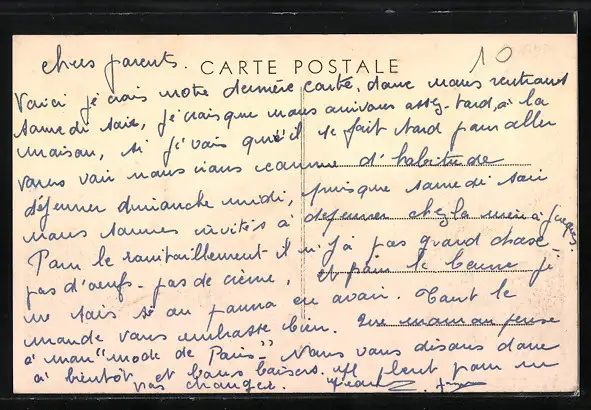 chers parents.
CARTE POSTALE
10
Voici je crois notre dernière carte, donc nous rentrons
samedi soir, je crois que nous arrivons assez tard, à la
maison, si je vois qu'il se fait tard pour aller
vous voir nous irons comme d'habitude
déjeuner dimanche midi, puisque samedi soir
nous sommes invités à déjeuner chez la mère à Jacques.
Pour le ravitaillement il n'y a pas grand chose
pas d'oeufs - pas de crème, et pour le beurre je
ne sais si on pourra en avoir. Tout le
monde vous embrasse bien. Que maman pense
à mon "mode de Paris" - Nous vous disons donc
à bientôt et bons baisers. Il pleut pour ne
pas changer.